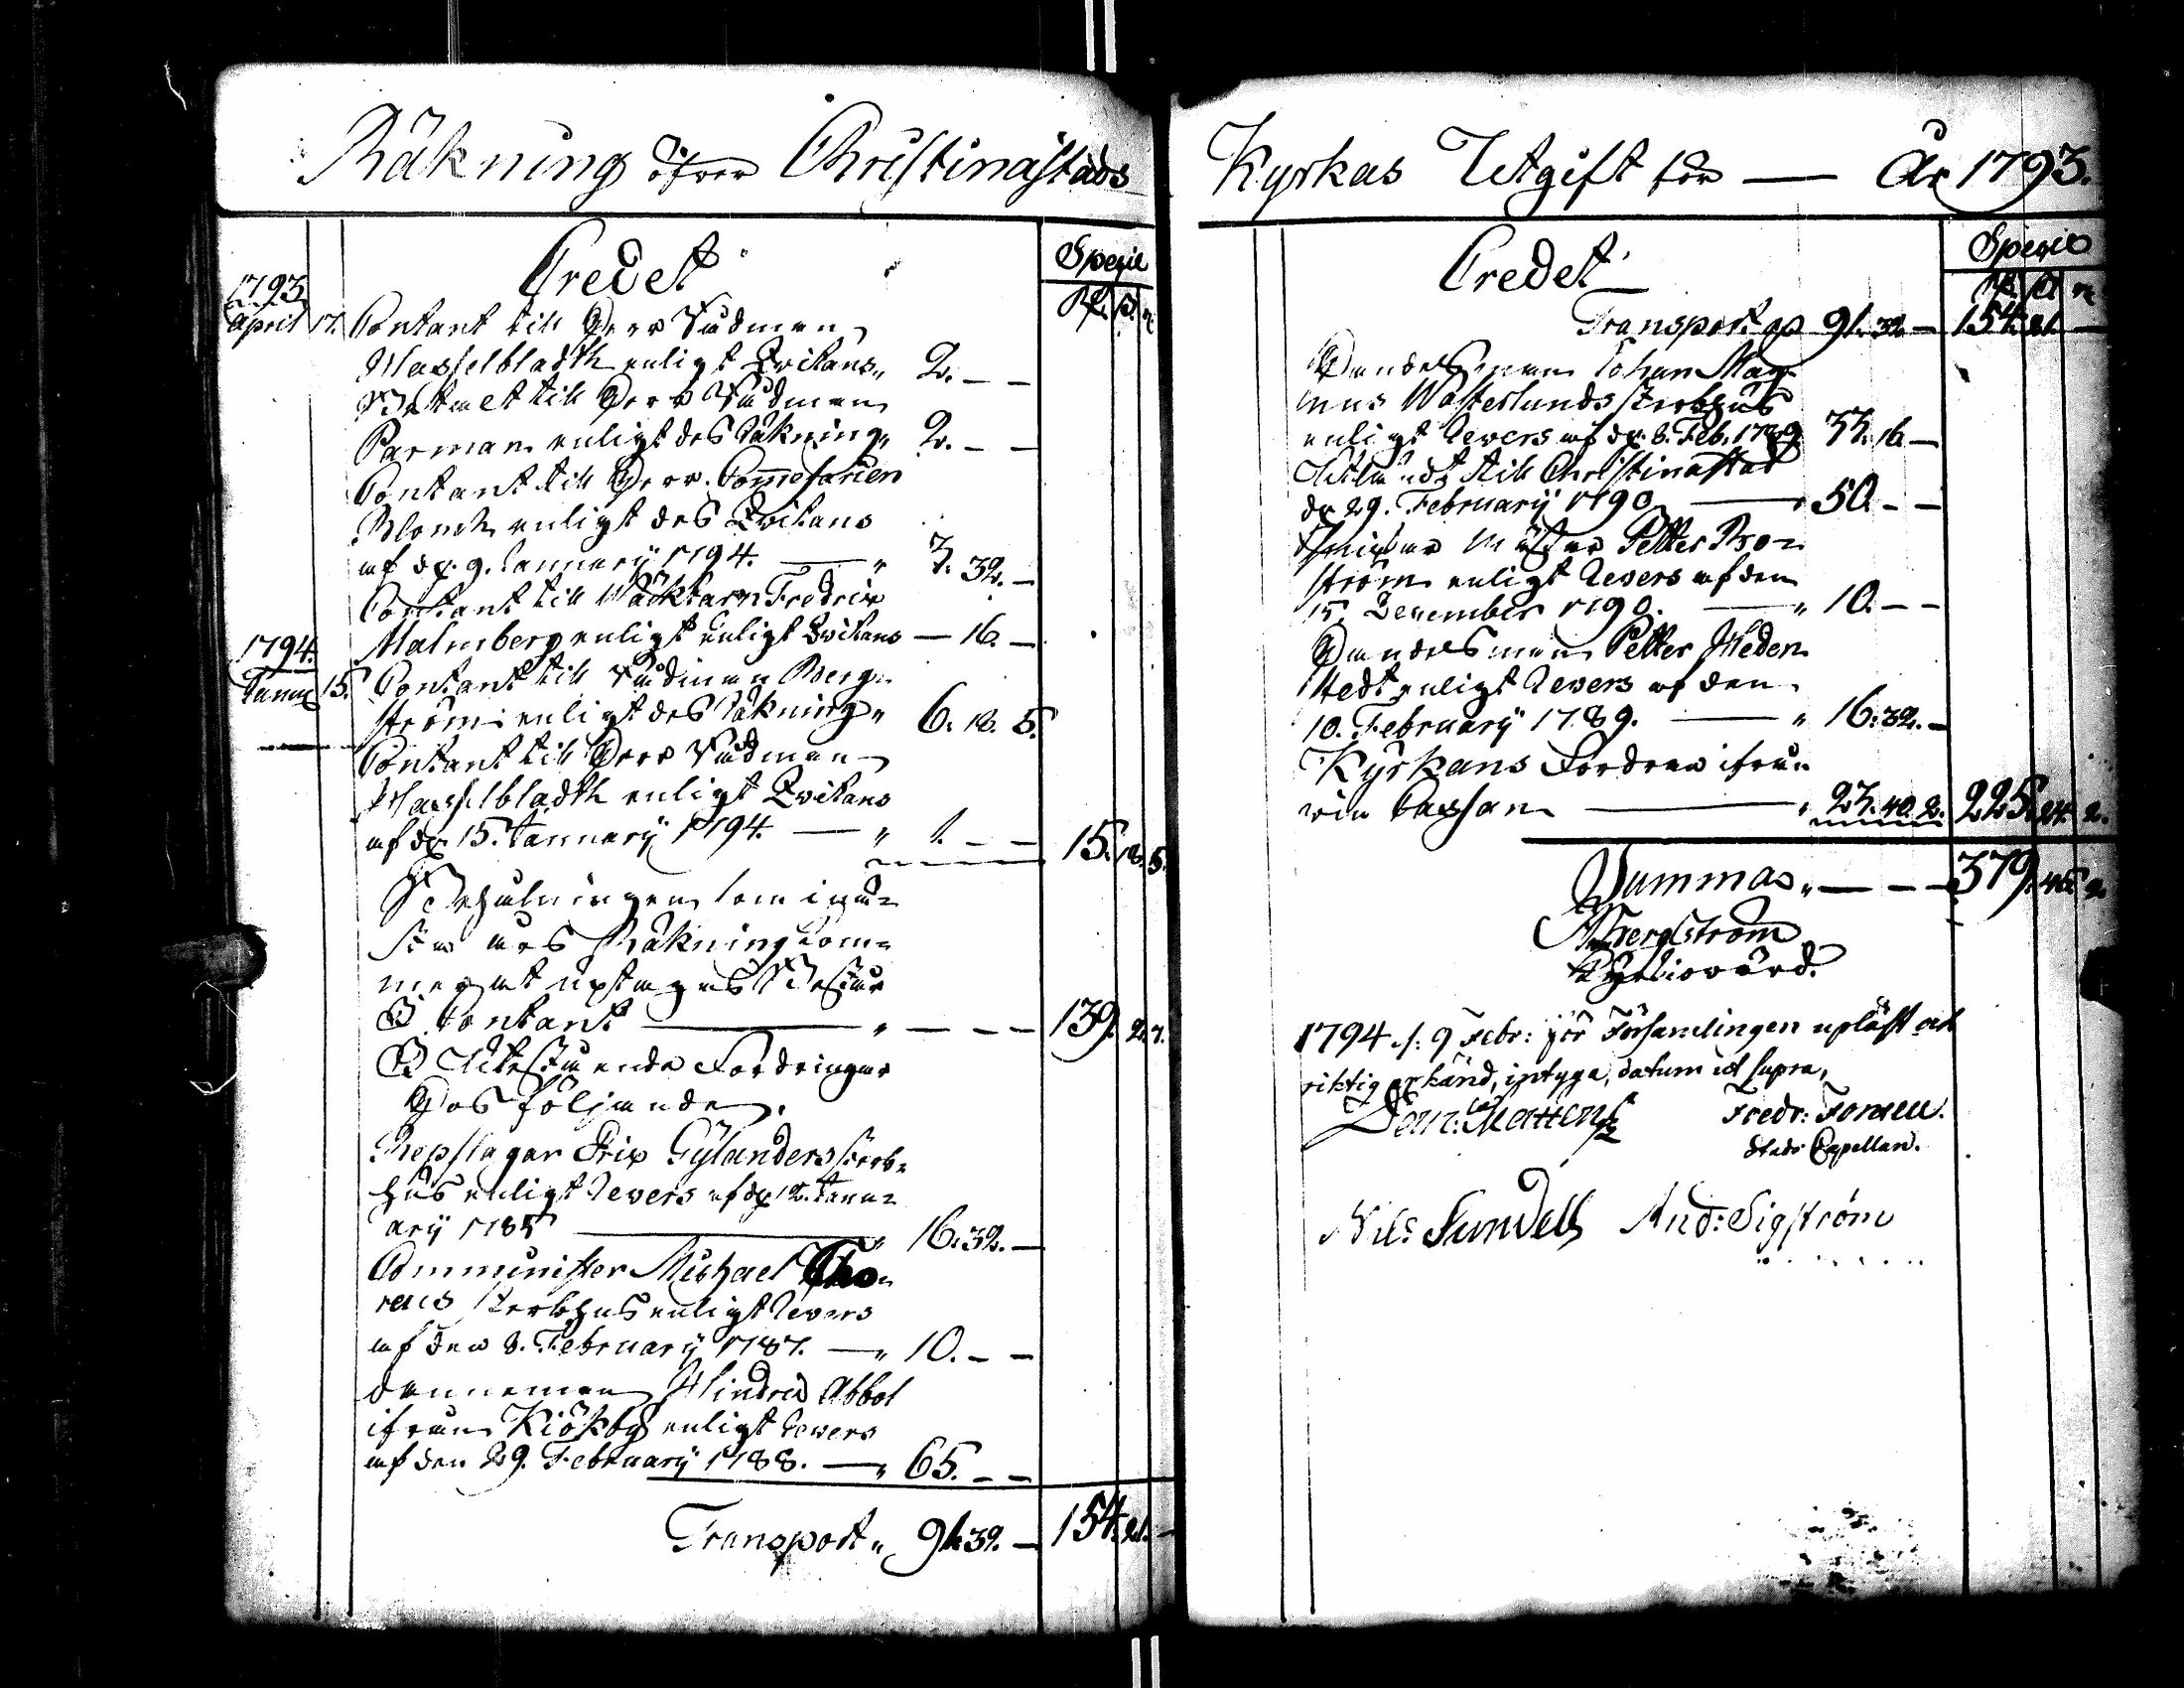 Räkning öfver Christinæstads
Credet
Spezie
1793
Rd. ß r
April 17. Contant till Herr Rådman
Hasselbladth enligt Qvitans „ 2. – –
Betalt till Herr Rådman
Parman enligt des Räkning „ 2. – –
Contant till Herr Commesarien
enligt des Qvitans
af d. 9. January 1794. — „ 3. 32. –
Contant till Wäcktarn Fredric
1794. Malmberg enligt enligt Qvitans – 16. –
Janu 15. Contant till Rådman Berg-
ström enligt des Räkning „ 6. 18. 5.
Contant till Herr Rådman
Hasselbladth enligt Qvitans
af d. 15. January 1794. — „ 1. – – 15. 18. 5.
Behålningen som i nä-
sta års Räkning kom-
mer at uptagas Består
I Contant — „ — – – 139. 2. 7.
I Utestående Fordringar
Hos följande.
Repslagar Eric Gylanders sterb-
hus enligt Revers af d. 12. Janu-
ary 1785 — „ 16. 32. –
Comminister Michael
sterbhus enligt Revers
af den 8. February 1787. — „ 10. – –
Dannemans Hindric Abbol
ifrån Kiökby enligt Revers
af den 29. February 1788. — „ 65. – –
Transport „ 91. 32. – 154. 21. –
Kyrkas Utgift för — År 1793.
Credet
Spezie
Rd ß r
Transport „ 91. 32. – 154. 21. –
Handelsman Johan Mag-
nus Wästerlunds sterbhus
enligt Revers af d. 8. Feb. 1789 33. 16. –
Utlåndt till Christinæstad
d. 29. February 1790 — „ 50. – –
Mäster Petter Bro-
ström enligt Revers af den
15. December 1790. — „ 10. – –
Handelsman Petter Heden-
stedt enligt Revers af den
10. February 1789. — „ 16. 32. –
Kyrkans Fordran ifrån
vin Cassan — „ 23. 40. 2. 225. 24. 2.
Summa „ — – – 379. 45. 2
Bergström
Kyrkiovärd.
1794 d. 9 Febr: för Församlingen upläst och
riktig erkänd, intyga, datum ut supra,
Fredr: Forsell.
Stads Capellan.
Nils Sundell And: Sigström